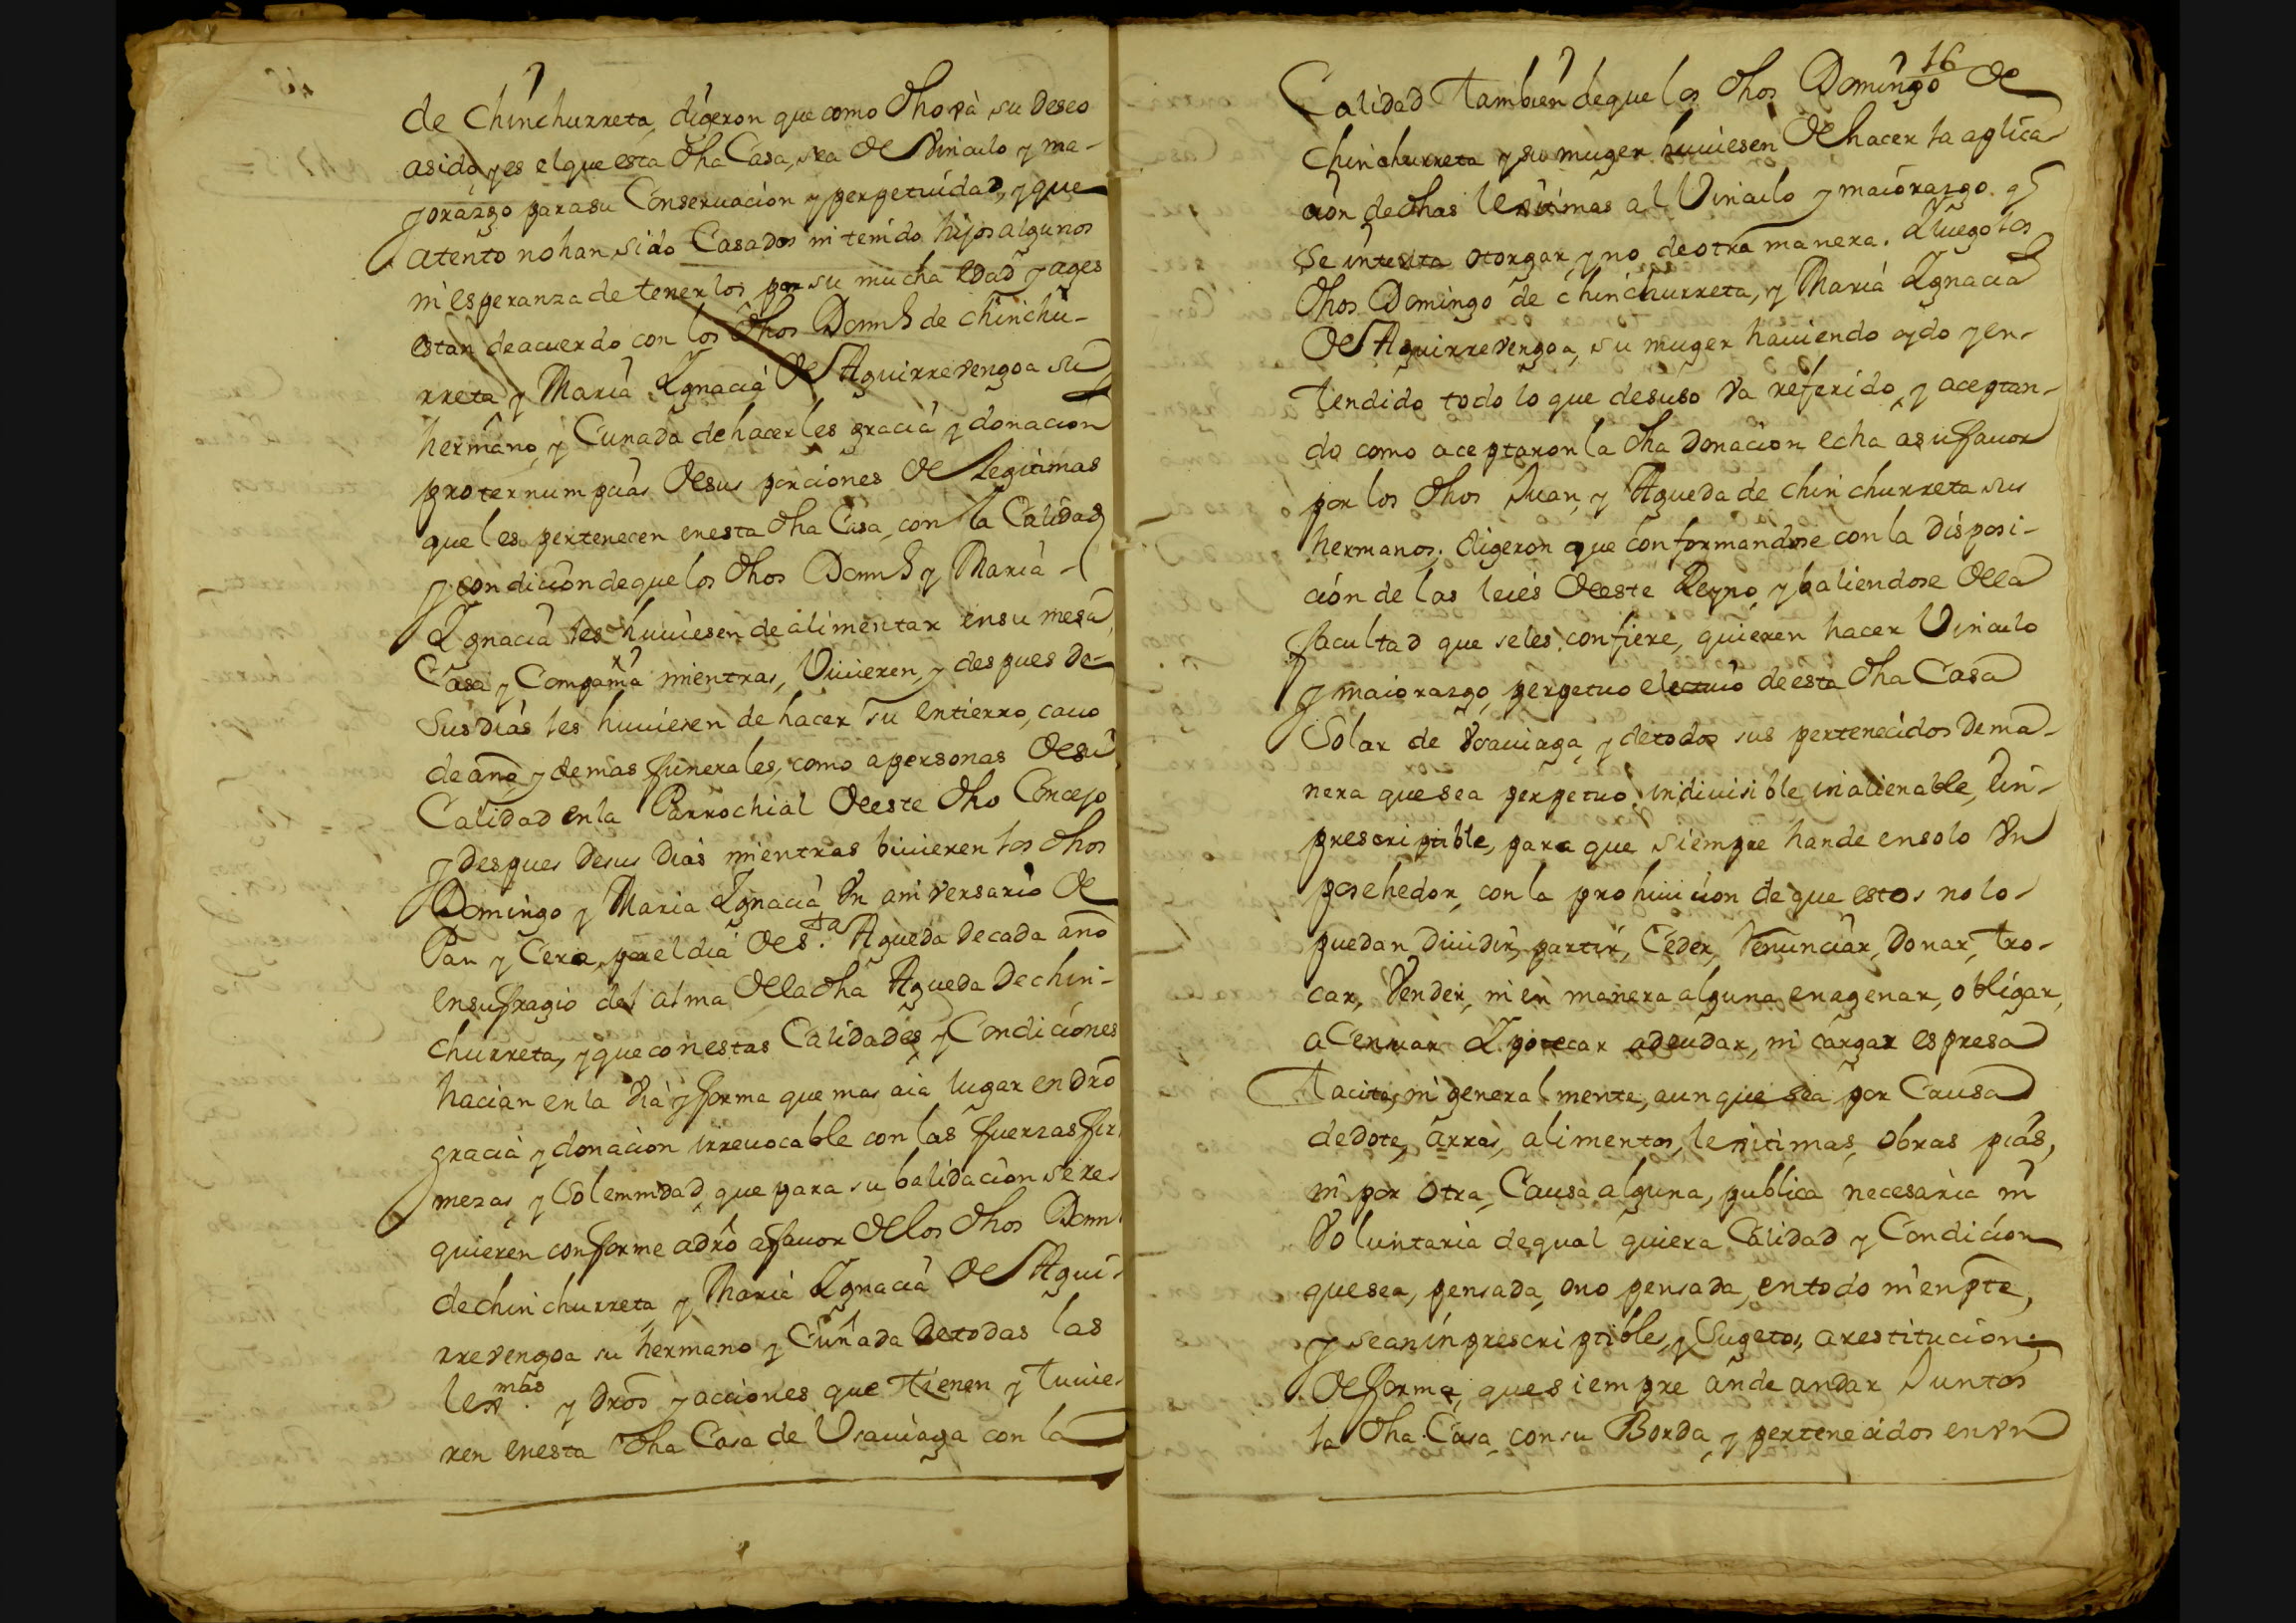 de Chinchurreta, digeron que como dho va su deseo
a sido, y es el que esta dha Casa, sea de Vinculo y ma-
yorazgo para su Conseruacion y perpetuidad, y que
atento no han sido Casados ni tenido hijos algunos
ni esperanza de tenerlos por su mucha edad y ages
estan de acuerdo con los dhos Domº de Chinchu-
rreta y Maria Ygnacia de Aguirrevengoa su
hermano, y Cuñada de hacerles gracia y donacion
proternum paas de sus porciones de Legitimas
que les pertenecen en esta dha Casa, con la Calidad
y condicion de que los dhos Domº y Maria
Ygnacia les huuiesen de alimentar en su mesa
Casa y Compañia mientras, Viuieren, y despues de
sus dias les huuiesen de hacer su entierro, cauo
de año, y demas funerales, como a personas de su
Calidad en la Parrochial de este dho Concejo
y despues de sus dias mientras biuieren los dhos
Domingo y Maria Ygnacia Vn aniversario de
Pan y Cera, por el dia de S.ta Agueda de cada año
en sufragio del alma de la dha Agueda de Chin-
churreta, y que con estas Calidades y Condiciones
hacian en la via y forma que mas aia lugar en dro
gracia y donacion irreuocable con las fuerzas fir
mezas y Solemnidad que para su balidacion se re
quieren conforme a dro a fauor de los dhos Domº
de chinchurreta y Maria Ygnacia de Agui-
rrevengoa su hermano y Cuñada de todas las
lexmas y dros y acciones que tienen y tuuie
ren en esta dha Casa de Vsauiaga con la
16
Calidad tambien de que los dhos Domingo de
Chinchurreta y su muger huuiesen de hacer la aplica
cion de dhas lexitimas al Vinculo y maiorazgo q
se intenta otorgar y no de otra manera. Y luego los
dhos Domingo de chinchurreta, y Maria Ygnacia
de Aguirrevengoa, su muger hauiendo oydo y en-
tendido todo lo que desuso va referido, y aceptan-
do como aceptaron la dha Donacion echa a su fauor
por los dhos Juan, y Agueda de chinchurreta sus
hermanos; digeron que conformandose con la disposi-
cion de las leies de este Reyno, y baliendose de la
facultad que se les confiere, quieren hacer Vinculo
y maiorazgo, perpetuo electiuo de esta dha Casa
Solar de Vsauiaga, y de todos sus pertenecidos de ma-
nera que sea perpetuo, indiuisible inalienable, e in-
prescriptible, para que siempre hande en solo Vn
posehedor, con la prohiuicion de que estos no lo
puedan diuidir, partir, Ceder, renunciar, Donar, tro-
car, Vender, ni en manera alguna enagenar, obligar,
acensuar Ypotecar adeudar, ni cargar espresa
tacita, ni generalmente, aunque sea por Causa
de dote, arras, alimentos, lexitimas, obras pias,
ni por otra, Causa alguna, publica necesaria ni
Voluntaria de qual quiera Calidad y Condicion
que sea, pensada, o no pensada, en todo ni en pte,
y sean inprescriptibles, y Sugetos, a restitucion;
de forma, que siempre ande andar Juntos
la dha Casa, con su Borda, y pertenecidos en vn